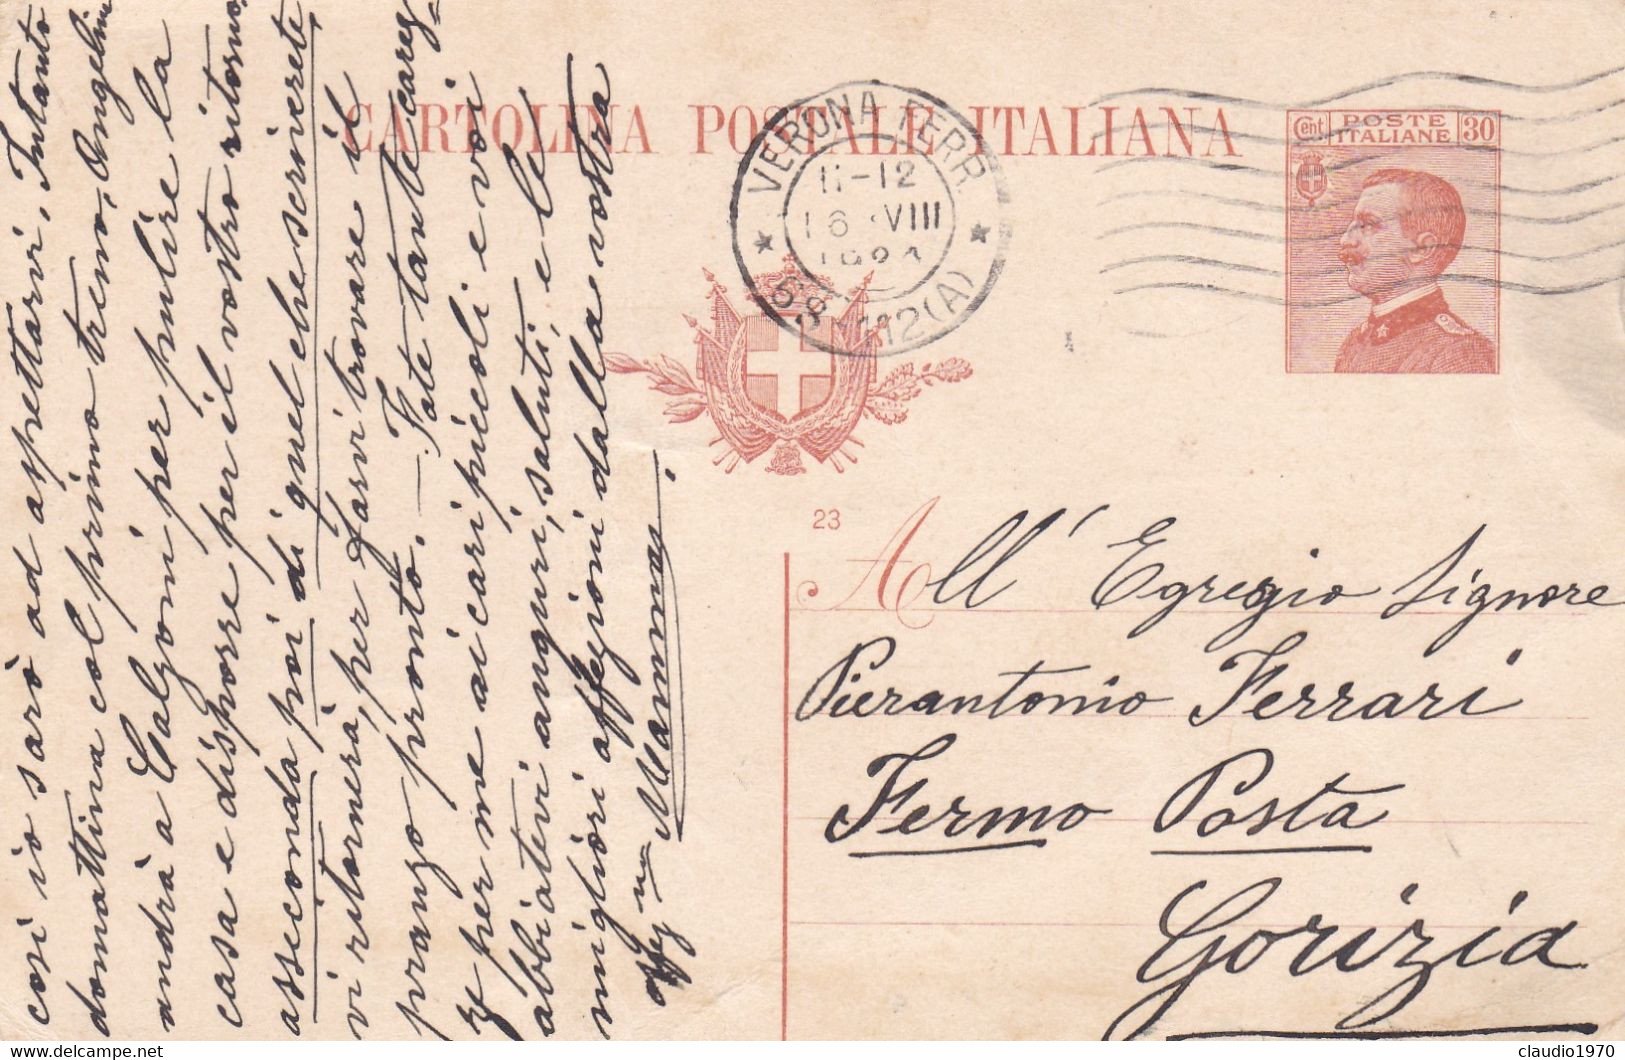 CARTOLINA POSTALE ITALIANA
VERONA FERR.
11-12
VIII
58-112(A)
Cent POSTE ITALIANE 30
23
All' Egregio Signore
Pierantonio Ferrari
Fermo Posta
Gorizia
così io sarò ad aspettarvi. Intanto
domattina col primo treno, Angelina
andrà a Calzoni per pulire la
casa e disporre per il vostro ritorno,
asseconda poi di quel che scriverete,
vi ritornerà, per farvi trovare il
pranzo pronto. — Fate tante carez=
ze per me ai cari piccoli e voi
abbiatevi auguri, saluti, e le
migliori affezioni dalla vostra
Mamma.
claudio1970